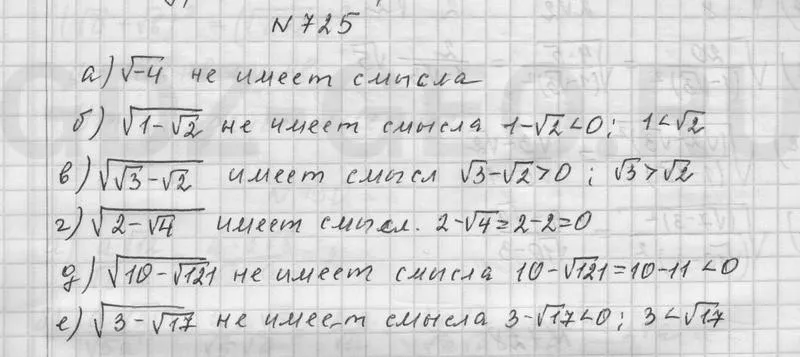 № 725
а) √-4 не имеет смысла
б) √(1-√2) не имеет смысла 1-√2<0; 1<√2
в) √(√3-√2) имеет смысл √3-√2>0; √3>√2
г) √(2-√4) имеет смысл. 2-√4=2-2=0
д) √(10-√121) не имеет смысла 10-√121=10-11<0
е) √(3-√17) не имеет смысла 3-√17<0; 3<√17